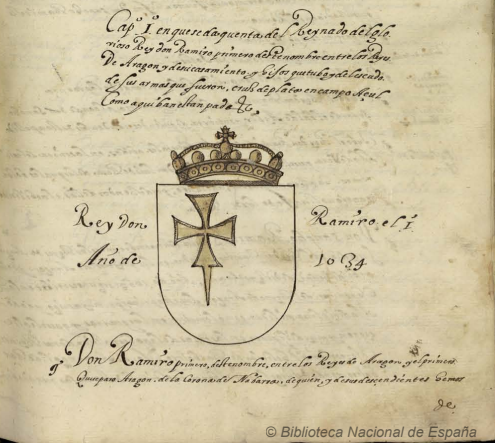 Cap.º I.º en que se da quenta del Reynado del glo
rioso Rey don Ramiro primero deste nombre entre los Reys
de Aragon y de su casamiento y hijos que tubo y del escudo
de sus armas que fueron, cruz de plata en campo Açul
Como aqui ban estanpadas &c.
Rey Don Ramiro el I
Año de 1034
Don Ramiro primero, deste nombre, entre los Reys de Aragon, y el primero
que uparo Aragon, de la Corona de Nabarra, de quien, y de sus descendientes hemos
de
© Biblioteca Nacional de España